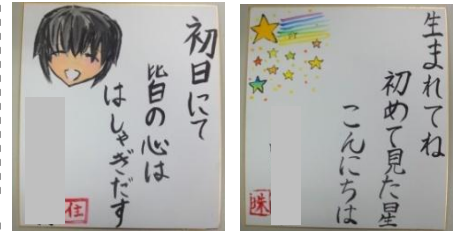 初日にて
皆の心は
はしゃぎだす
生まれてね
初めて見た星
こんにちは